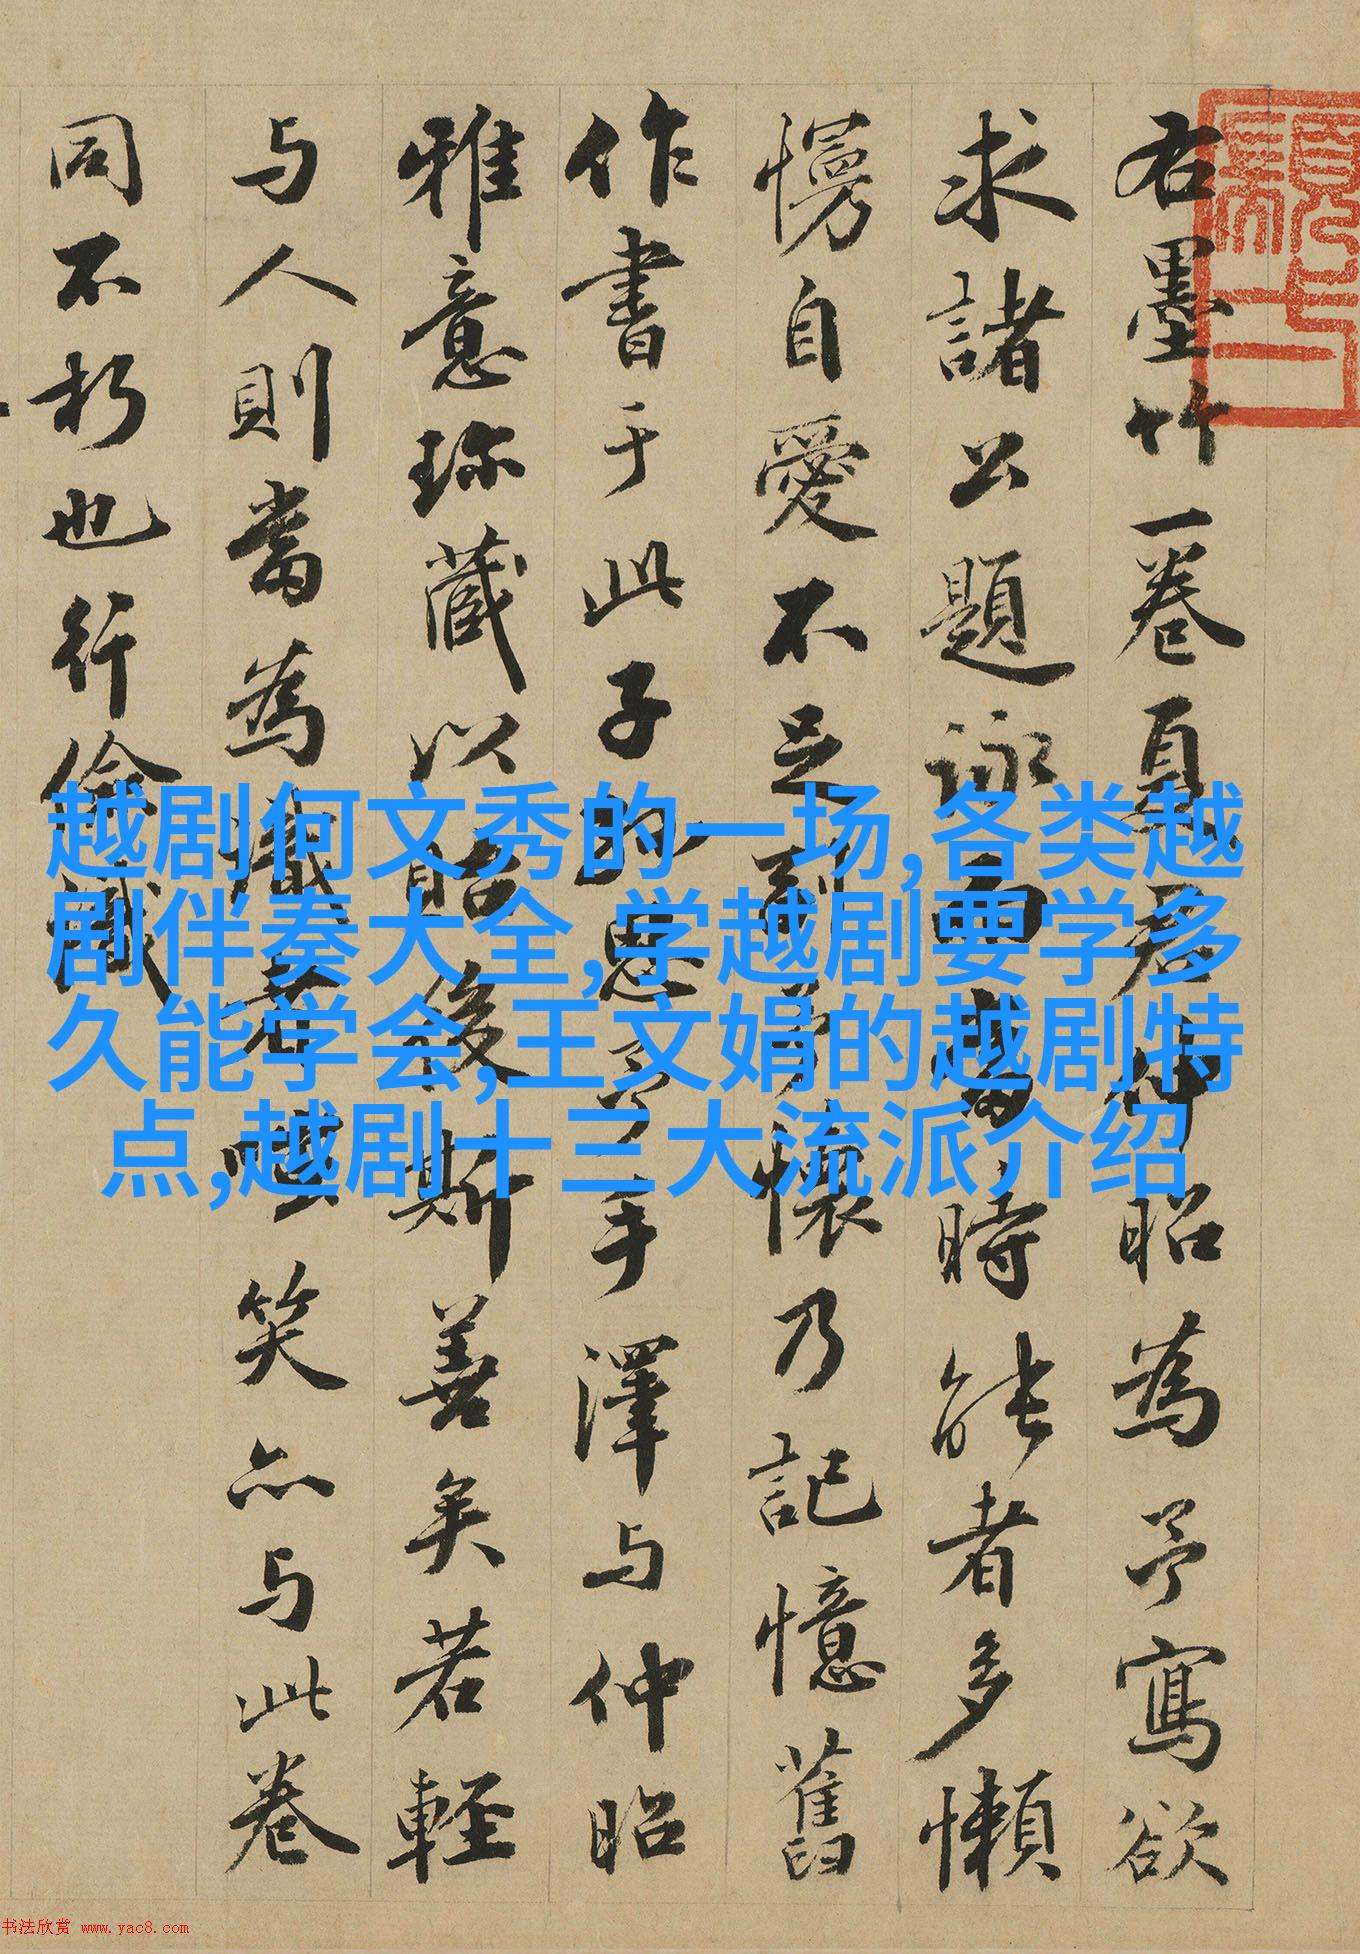 右墨竹一卷夏君仲昭為予寫欲
求諸公題詠而當時能者多懶
慢自愛不足副予懷乃記憶舊
作書于此子思手澤与仲昭
雅意珎藏以貽後斯善矣若輕
与人則當為識者嗤笑亦与此卷
同不朽也行儉識
越剧何文秀的一场,各类越
剧伴奏大全,学越剧要学多
久能学会,王文娟的越剧特
点,越剧十三大流派介绍
书法欣赏 www.yac8.com